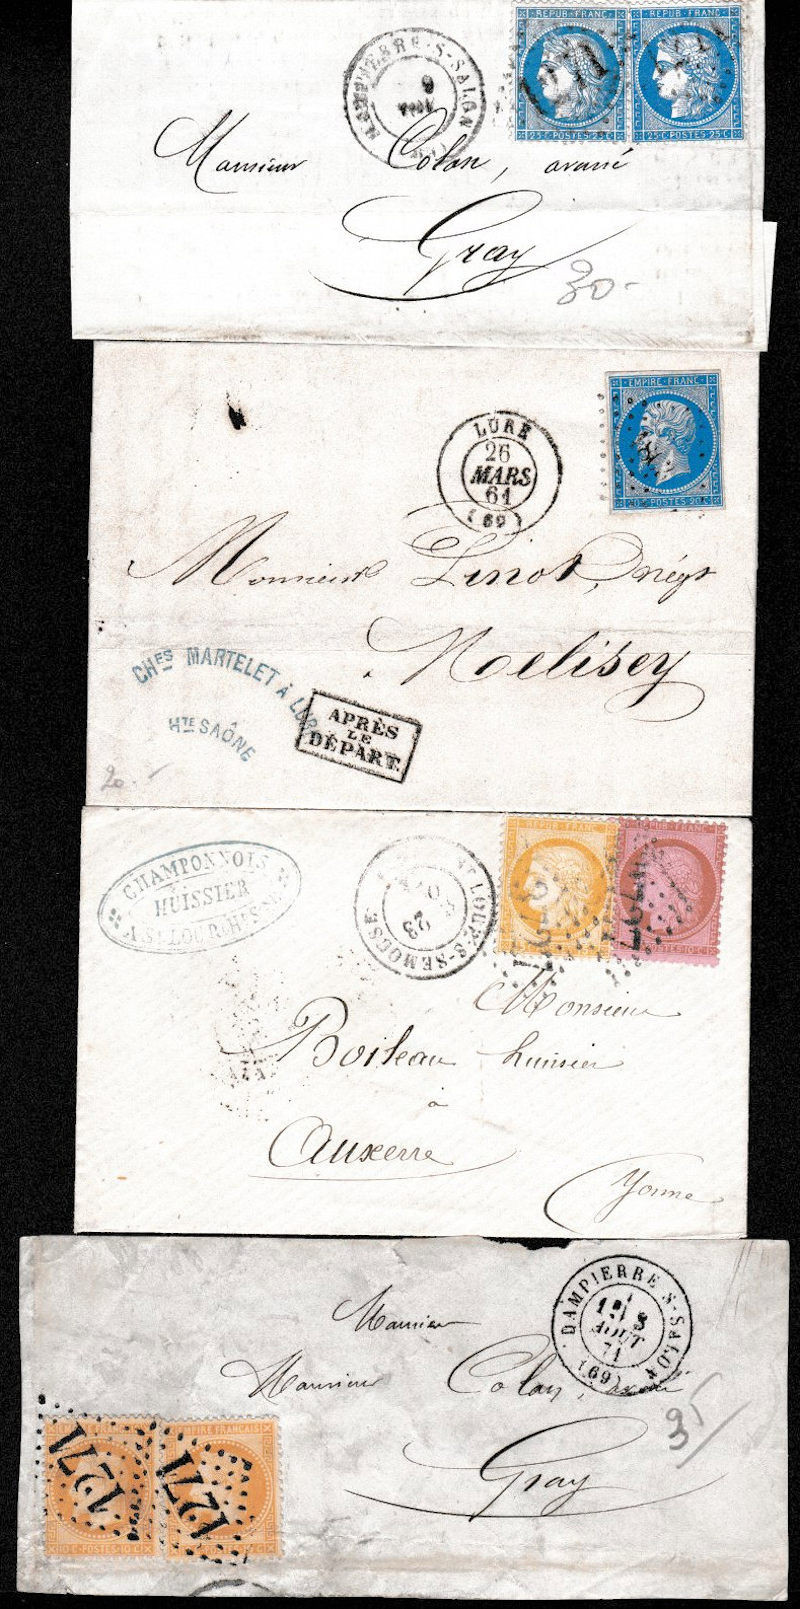 REPUB·FRANC·
REPUB·FRANC·
25·C·POSTES·25·C
25·C·POSTES·25·C·
DAMPIERRE-S-SALON
9
Monsieur Colan, avoué
Gray
30-
EMPIRE·FRANC·
20·C·POSTES·20·C
LURE
26
MARS
61
(69)
Monsieur Linot, négt
Melisey
CHES MARTELET À LURE
HTE SAÔNE
APRÈS
LE
DÉPART
20.-
REPUB·FRANC·
REPUB·FRANC·
POSTES·10·C
CHAMPONNOIS
HUISSIER
LOUP-S-SEMOUSE
23
Monsieur
Boileau huissier
à
Auxerre
Yonne
DAMPIERRE-S-SALON
3
AOUT
71
(69)
Monsieur
Monsieur Colan, avoué
35
Gray
EMPIRE FRANÇAIS
1271
1271
10·C·POSTES·10·C·